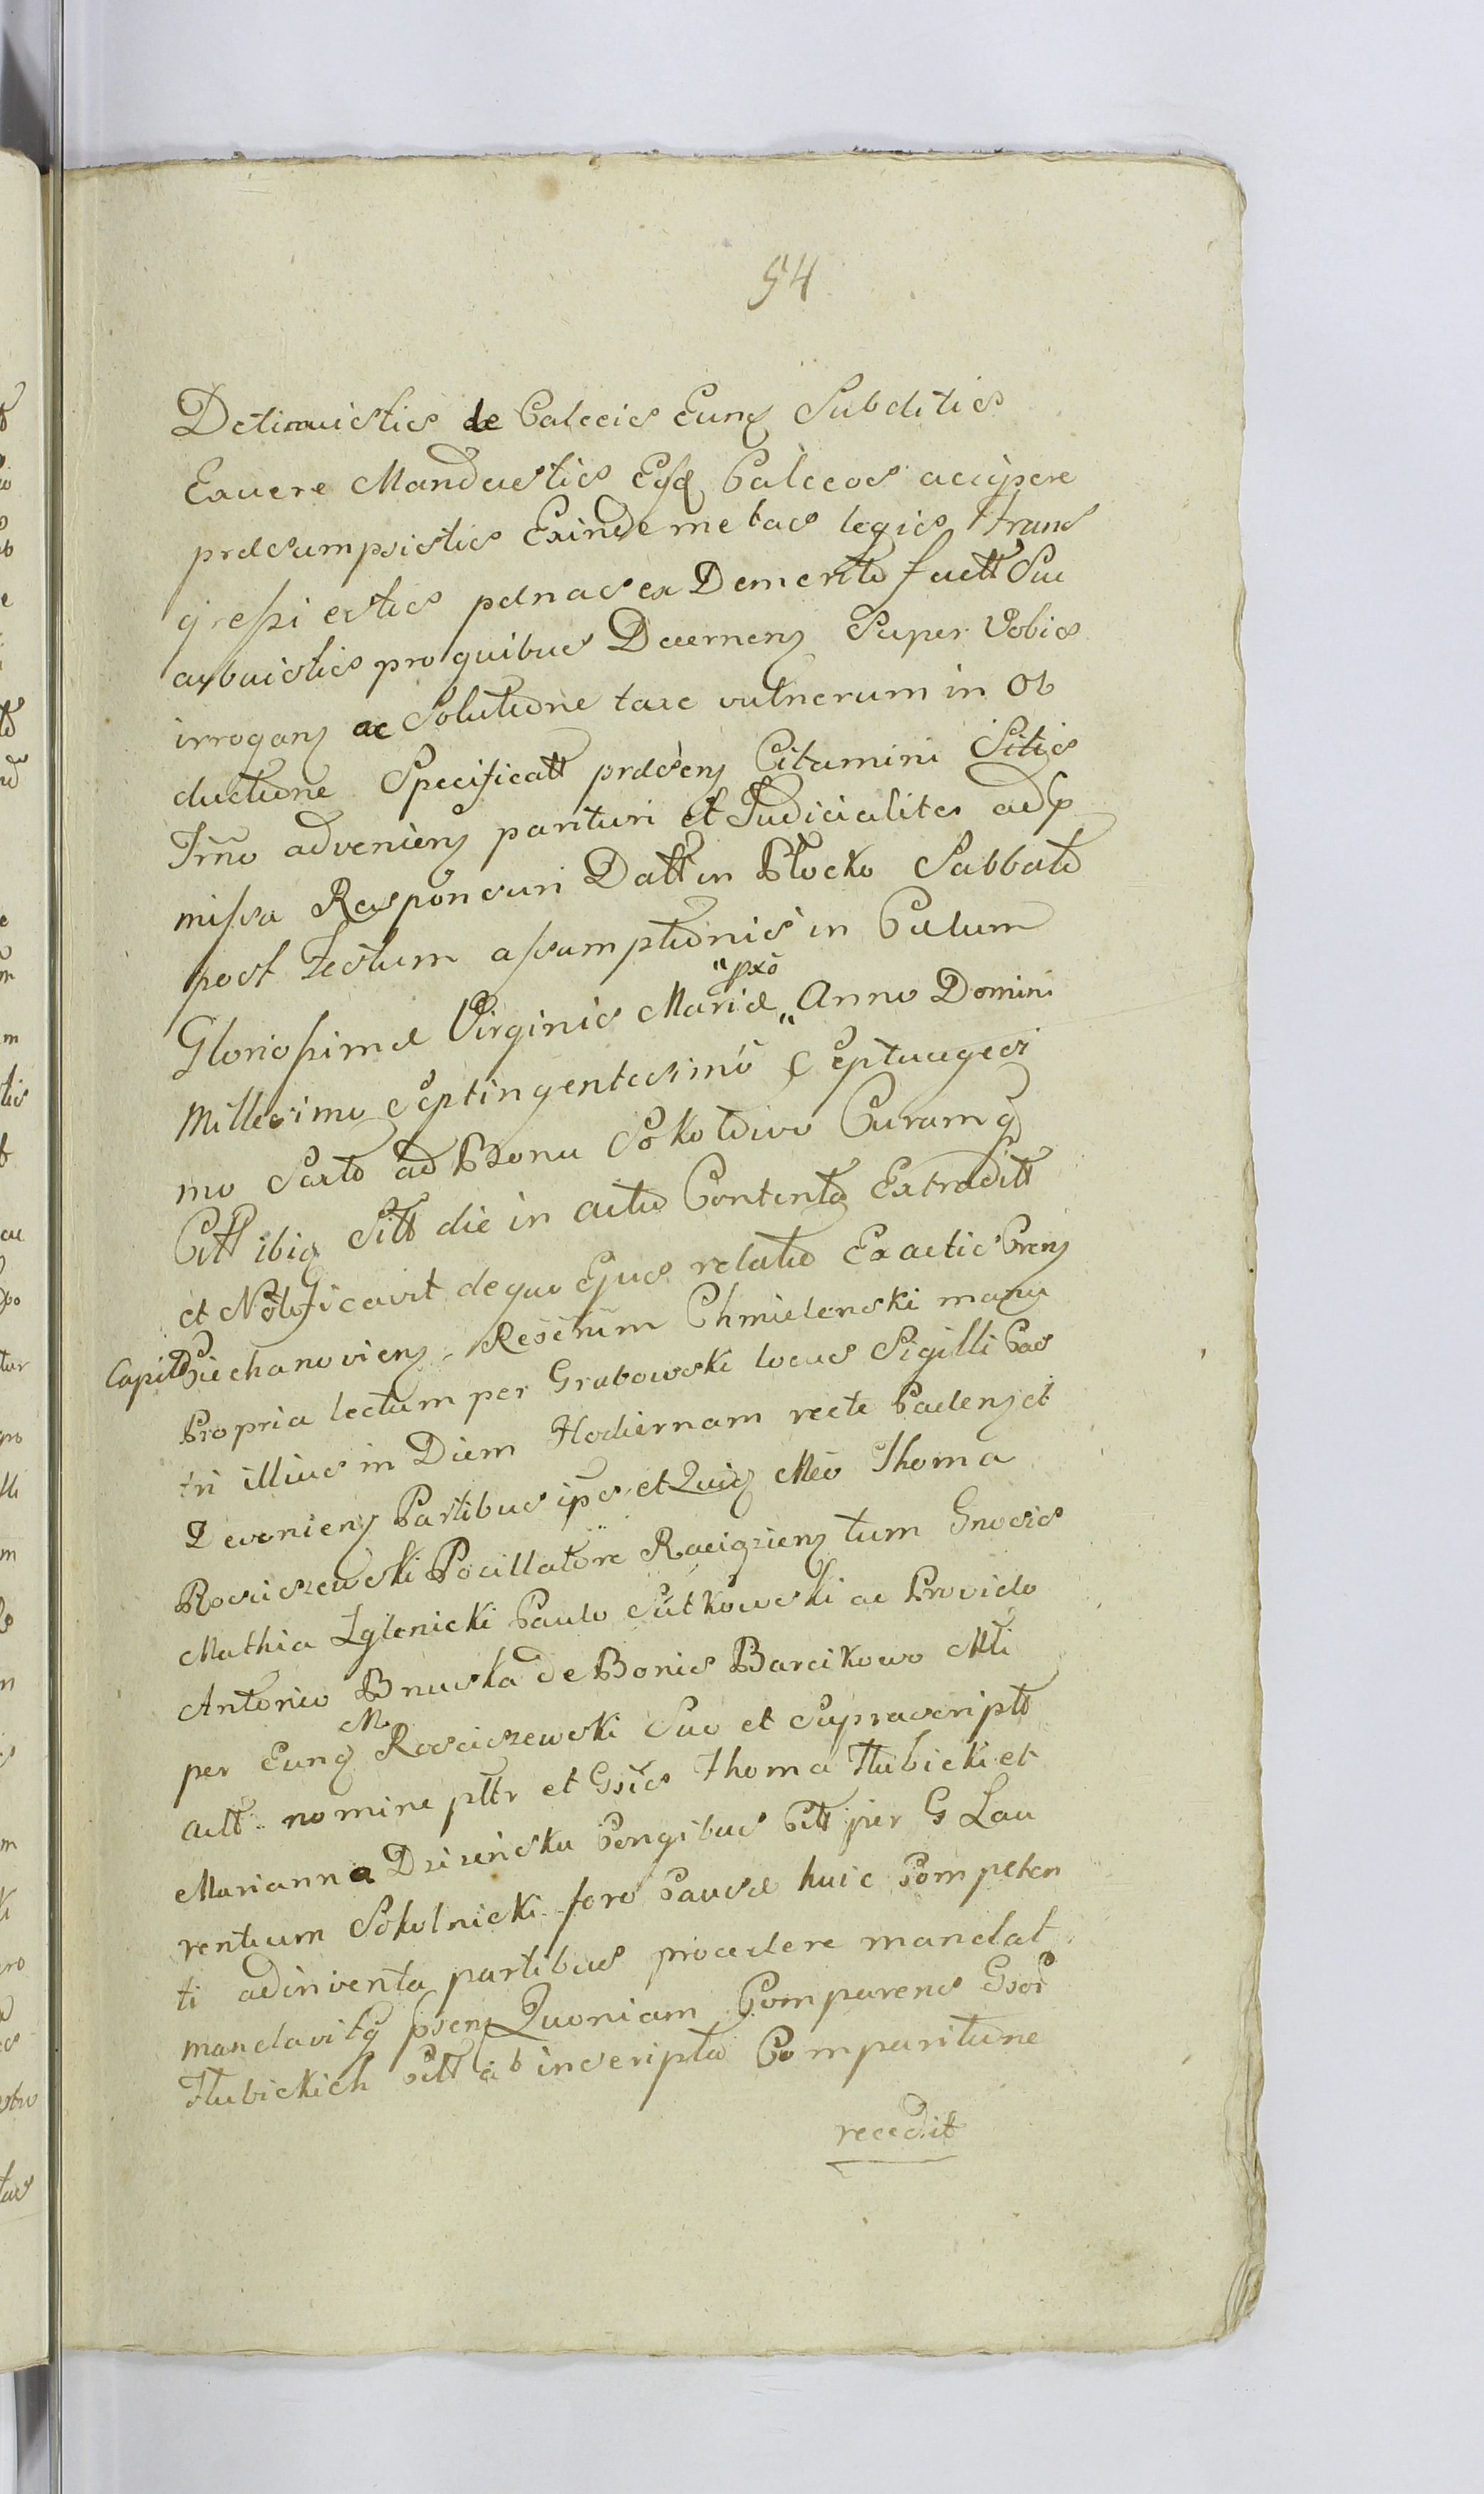 54
Detinuistis de Calceis Eunq Subditis
Exuere Mandastis Eosq Calceos accipere
præsumpsistis Exinde metas legis trans
gressi estis pænas ex Demerito factt Suc
cubuistis pro quibus Decernens Super Vobis
irrogans ac Solutione taxæ vulnerum in Ob
ductione Specificatt præsens Citamini Sitis
Trno adveniens parituri et Judicialiter adp
missa Responsuri Datt in Płocko Sabbato
post Festum assumptionis in Cælum
Gloriossimæ Virginis Mariæ „ Anno Domini
„ pxo
Millesimo Septingentesimo Septuagesi
mo Sexto ad Bona Sokołowo Curamq
Citt ibiq Sitt die in actu Contento Extraditt
et Notificavit de quo Ejus relatio Ex actis Cren
Capit Ciechanoviens Resetum Chmielenski manu
Propria lectum per Grabowski locus Sigilli Cas
tri illius in Diem Hodiernam recte Cadens et
Devoniens Partibus ips et Quiq Meo Thoma
Rosciszewski Pocillatore Raciąziens tum Gnosis
Mathia Zglenicki Paulo Sutkowski ac Provido
Antonio Bruska de Bonis Barcikowo Mli
per Eunq M Rosciszewski Suo et Suprascriptt
actt nomine pttr et Gsis Thoma Hubicki et
Marianna Dzizinska Congibus Citt per G Lau
rentium Sokolnicki foro Causæ huic Competen
ti adinventa partibus procedere mandat
mandavitq psens Quoniam Comparens Gsor
Hubickich Citt ab inscripta Comparitione
recedit